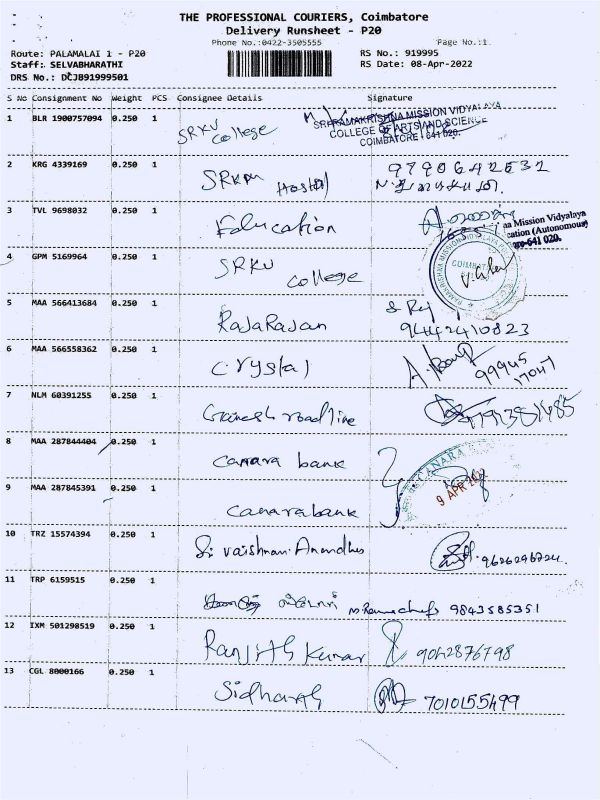 THE PROFESSIONAL COURIERS, Coimbatore
Delivery Runsheet - P20
Phone No.:0422-3505555 Page No.:1.
Route: PALAMALAI 1 - P20 RS No.: 919995
Staff: SELVABHARATHI RS Date: 08-Apr-2022
DRS No.: DCJB91999501
S No Consignment No Weight PCS Consignee Details Signature
1 BLR 1900757094 0.250 1 SRKV College SRI RAMAKRISHNA MISSION VIDYALAYA
COLLEGE OF ARTS AND SCIENCE
COIMBATORE - 641 020.
2 KRG 4339169 0.250 1 SRKM Hostel 9790642532
3 TVL 9698032 0.250 1 Education
aa Mission Vidyalaya
cation (Autonomous)
641 020.
4 GPM 5169964 0.250 1 SRKV College
5 MAA 566413684 0.250 1 RajaRajan 9442410823
6 MAA 566558362 0.250 1 Crystal 99945
17047
7 NLM 60391255 0.250 1 Ganesh roadline
8 MAA 287844404 0.250 1 canara bank CANARA
9 APR 202
9 MAA 287845391 0.250 1 canara bank
10 TRZ 15574394 0.250 1 Sri vaishnavi Anandhas 9626296724.
11 TRP 6159515 0.250 1 9843585351
12 IXM 501298519 0.250 1 Ranjith Kumar 9042876798
13 CGL 8000166 0.250 1 Sidharth 7010155499